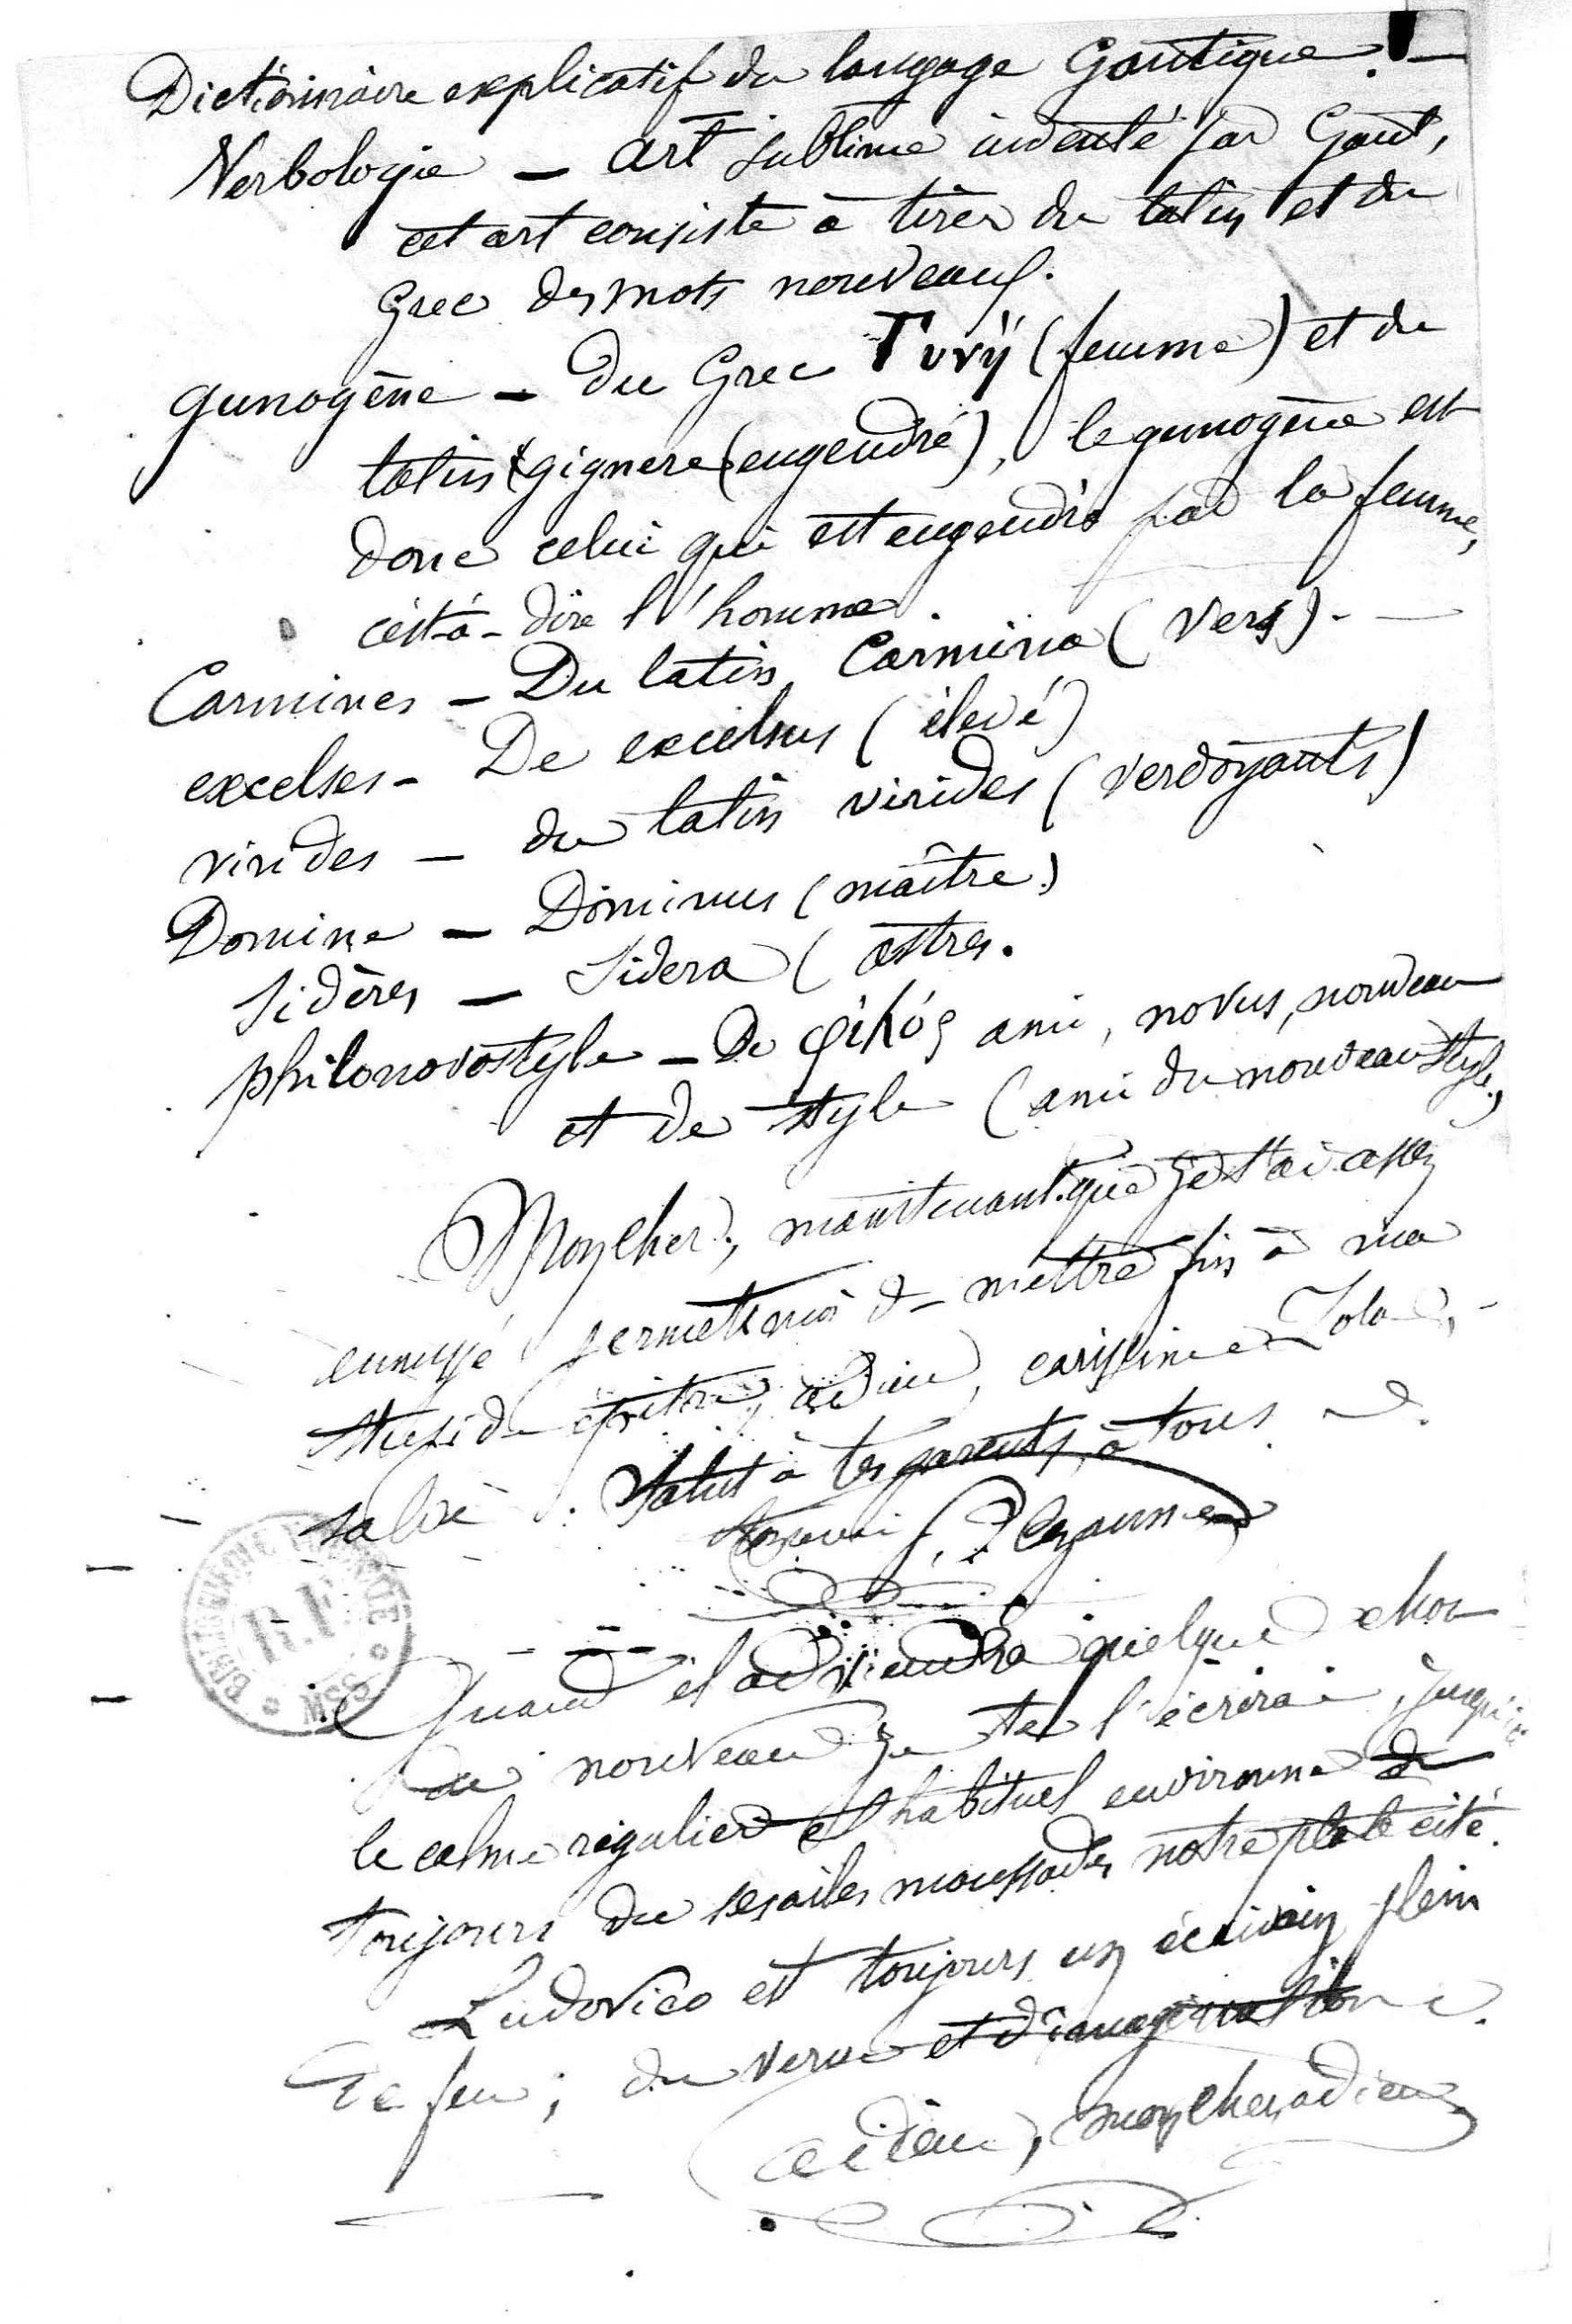 Dictionnaire explicatif du langage Gautique. —
Verbologie — art sublime inventé par Gaut,
cet art consiste à tirer du latin et du
Grec des mots nouveaux.
gunogène — du Grec Γυνή (femme) et du
latin gignere (engendré), le gunogène est
donc celui qui est engendré par la femme,
c'est-à-dire l'homme.
Carmines — Du latin Carmina (vers). —
excelses — De excelsus (élevé)
virides — du latin virides (verdoyants)
Domine — Dominus (maître)
Sidères — Sidera (astres.
philonovostyle — De φιλός ami, novus, nouveau
et de style (ami du nouveau style,)
Mon cher, maintenant que je t'ai assez
ennuyé permets moi de mettre fin à ma
stupide épitre, adieu, carissime Zola,
salve. Salut à tes parents, à tous
ton ami P. Cézanne
Quand il adviendra quelque chose
de nouveau je te l'écrirai, jusqu'ici
le calme régulier et habituel environne de
toujours de ses ailes moussades notre plate cité.
Ludovico est toujours un écrivain plein
de feu; de verve et d'imagination.
adieu, mon cher, adieu
BIBLIOTHÈQUE NATIONALE
R.F.
MSS